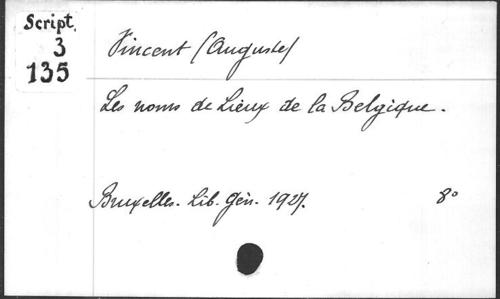 Script.
3
135
Vincent (Auguste)
Les noms de Lieux de la Belgique.
Bruxelles. Lib. Gén. 1927. 8°